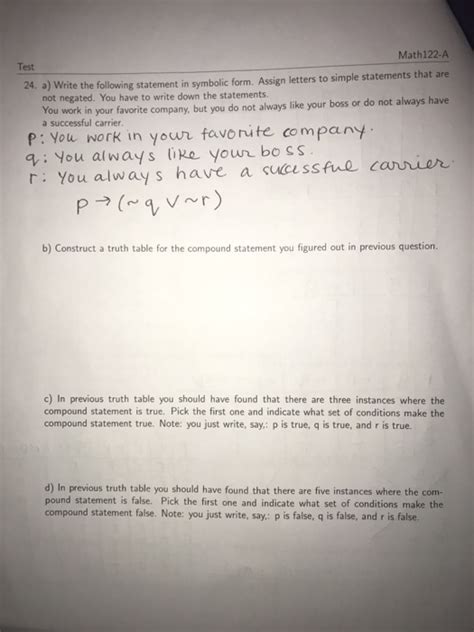 Math122-A
Test
24. a) Write the following statement in symbolic form. Assign letters to simple statements that are
not negated. You have to write down the statements.
You work in your favorite company, but you do not always like your boss or do not always have
a successful carrier.
p: You work in your favorite company.
q: You always like your boss.
r: You always have a successful carrier.
p → (~q ∨ ~r)
b) Construct a truth table for the compound statement you figured out in previous question.
c) In previous truth table you should have found that there are three instances where the
compound statement is true. Pick the first one and indicate what set of conditions make the
compound statement true. Note: you just write, say,: p is true, q is true, and r is true.
d) In previous truth table you should have found that there are five instances where the com-
pound statement is false. Pick the first one and indicate what set of conditions make the
compound statement false. Note: you just write, say,: p is false, q is false, and r is false.